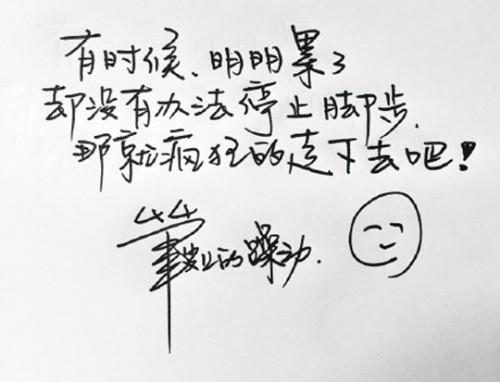 有时候、明明累了
却没有办法停止脚步.
那就疯狂的走下去吧!
笔尖上的躁动.